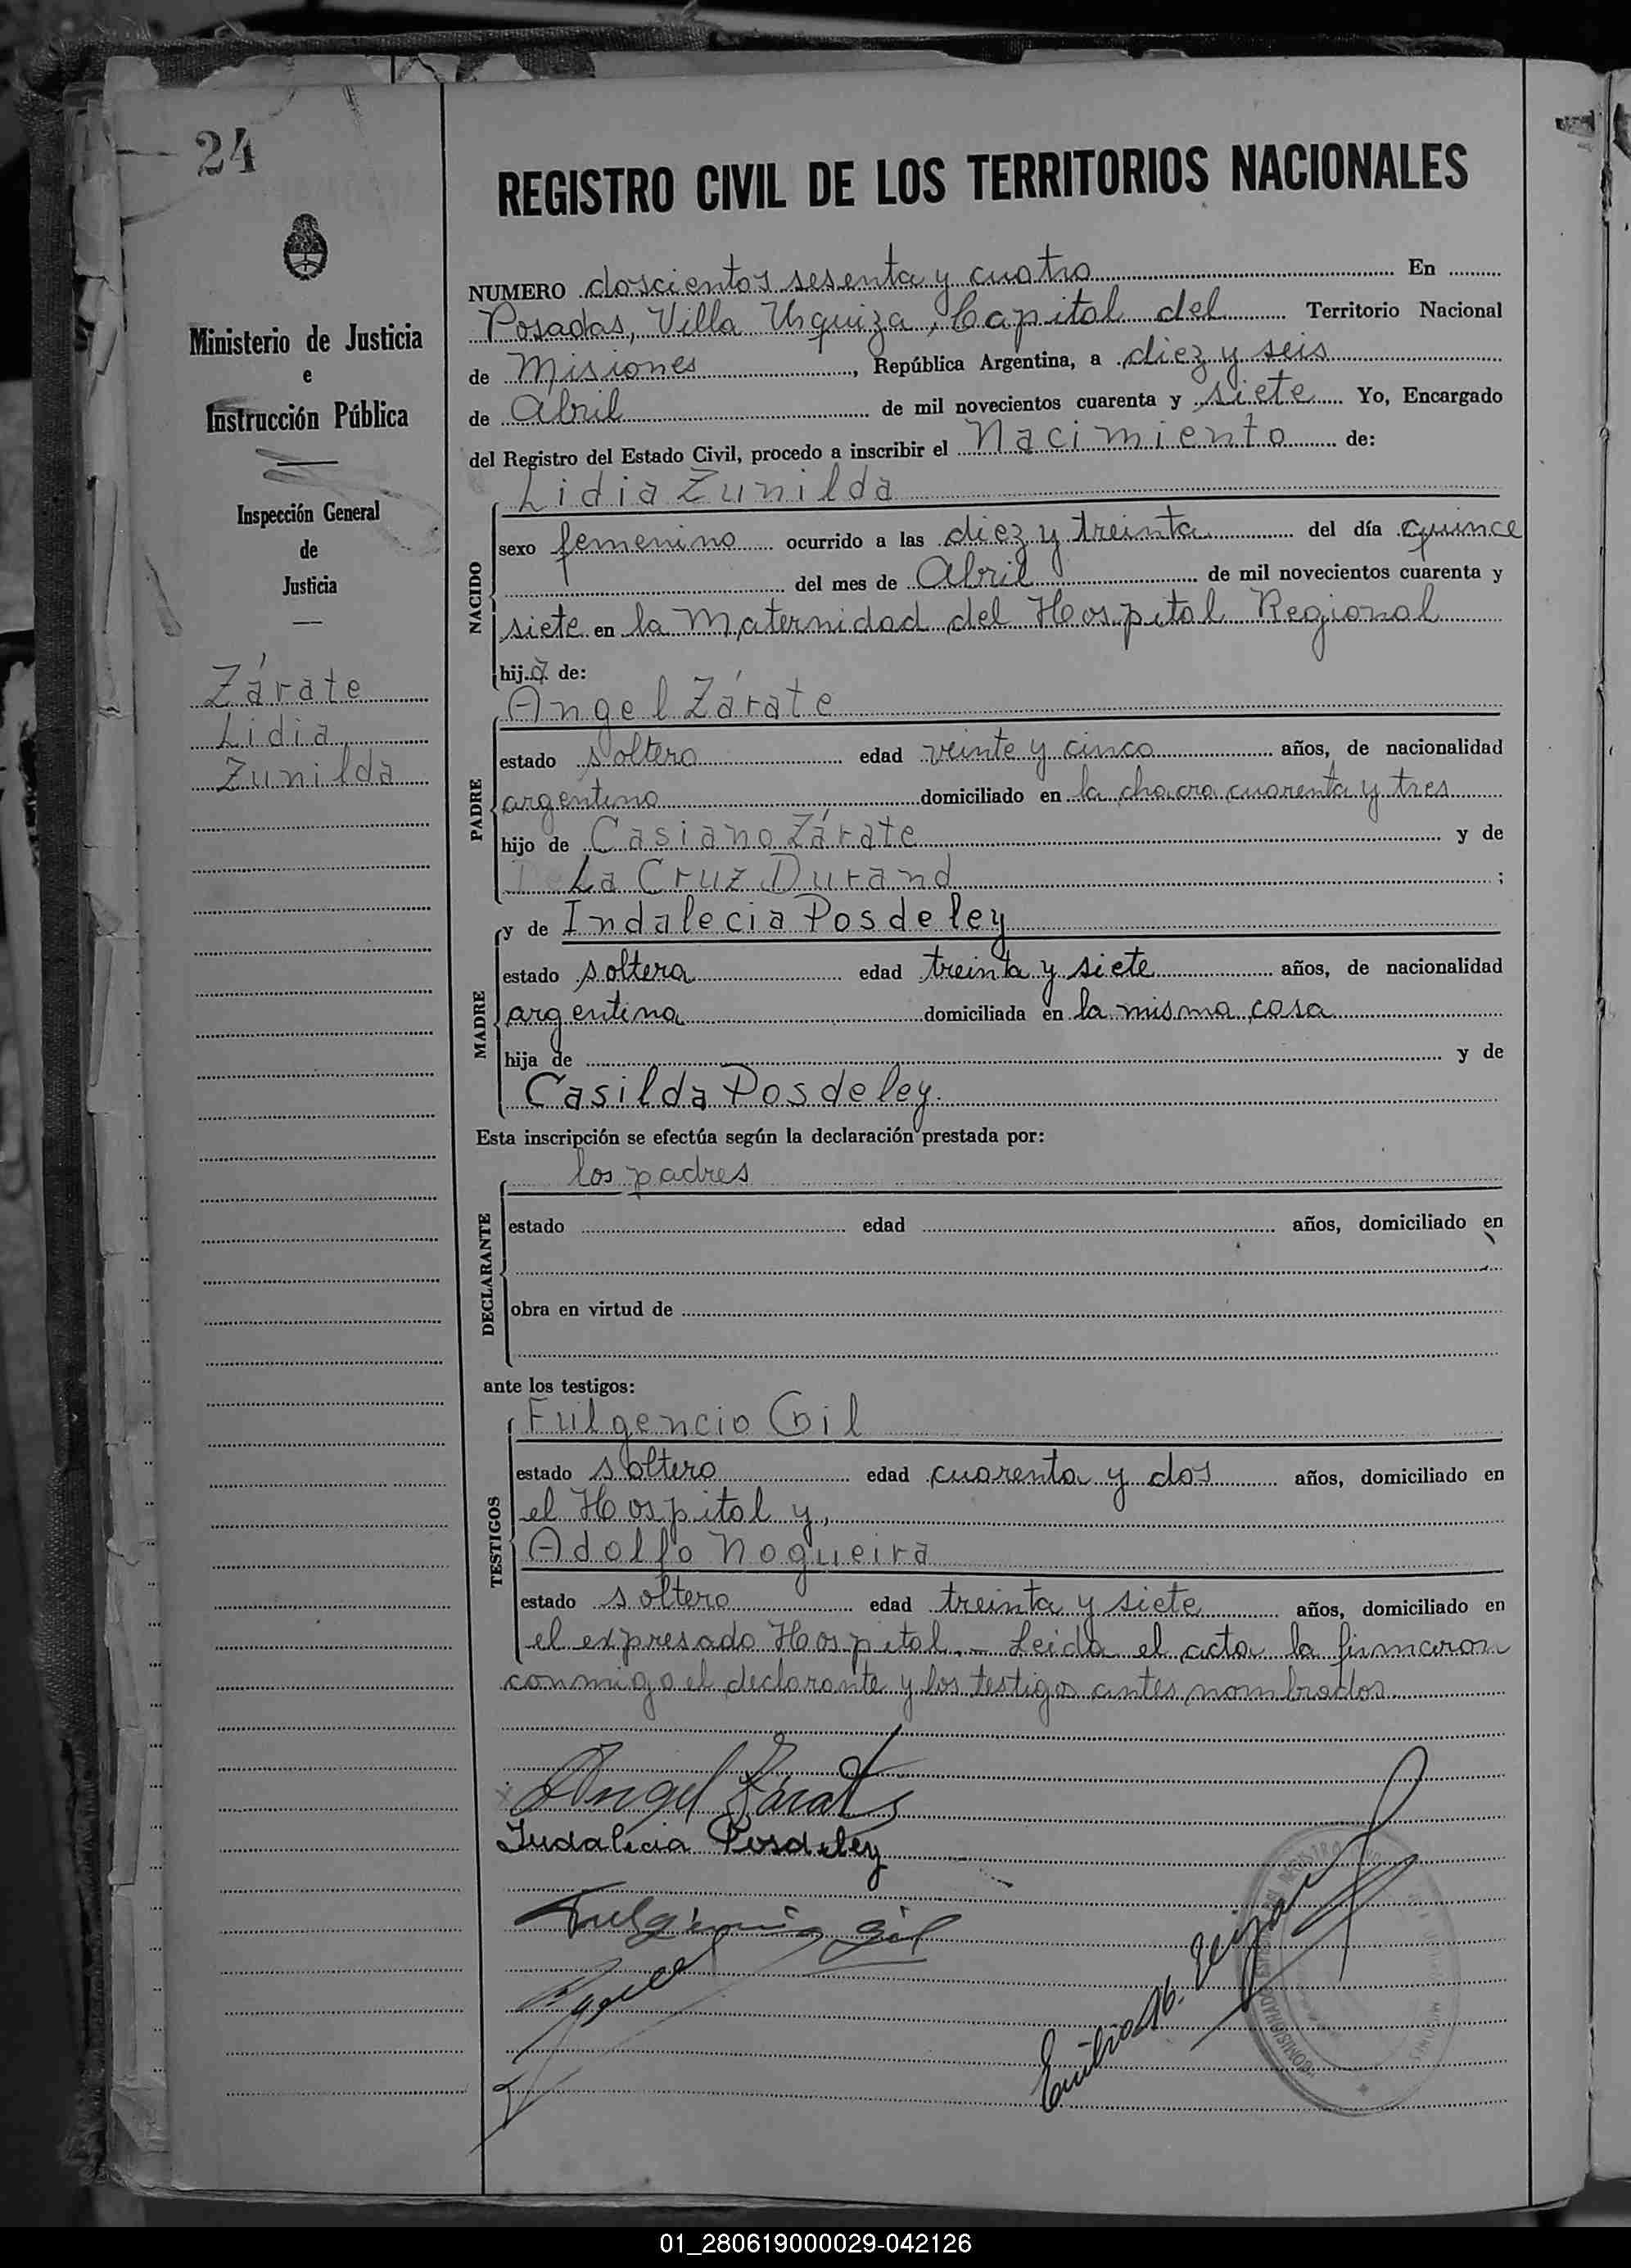 24
Ministerio de Justicia
e
Instrucción Pública
Inspección General
de
Justicia
Zárate
Lidia
Zunilda
REGISTRO CIVIL DE LOS TERRITORIOS NACIONALES
NUMERO doscientos sesenta y cuatro En
Posadas, Villa Urquiza, Capital del Territorio Nacional
de Misiones, República Argentina, a diez y seis
de Abril de mil novecientos cuarenta y siete Yo, Encargado
del Registro del Estado Civil, procedo a inscribir el Nacimiento de:
NACIDO
Lidia Zunilda
sexo femenino ocurrido a las diez y treinta del día quince
del mes de Abril de mil novecientos cuarenta y
siete en la Maternidad del Hospital Regional
hija de:
PADRE
Angel Zárate
estado soltero edad veinte y cinco años, de nacionalidad
argentino domiciliado en la chacra cuarenta y tres
hijo de Casiano Zárate y de
De La Cruz Durand ;
MADRE
y de Indalecia Posdeley
estado soltera edad treinta y siete años, de nacionalidad
argentina domiciliada en la misma casa
hija de y de
Casilda Posdeley.
Esta inscripción se efectúa según la declaración prestada por:
DECLARANTE
los padres
estado edad años, domiciliado en
obra en virtud de
ante los testigos:
TESTIGOS
Fulgencio Gil
estado soltero edad cuarenta y dos años, domiciliado en
el Hospital y,
Adolfo Nogueira
estado soltero edad treinta y siete años, domiciliado en
el expresado Hospital.- Leida el acta la firmaron
conmigo el declarante y los testigos antes nombrados
Angel Zárate
Indalecia Posdeley
Fulgencio Gil
01_280619000029-042126